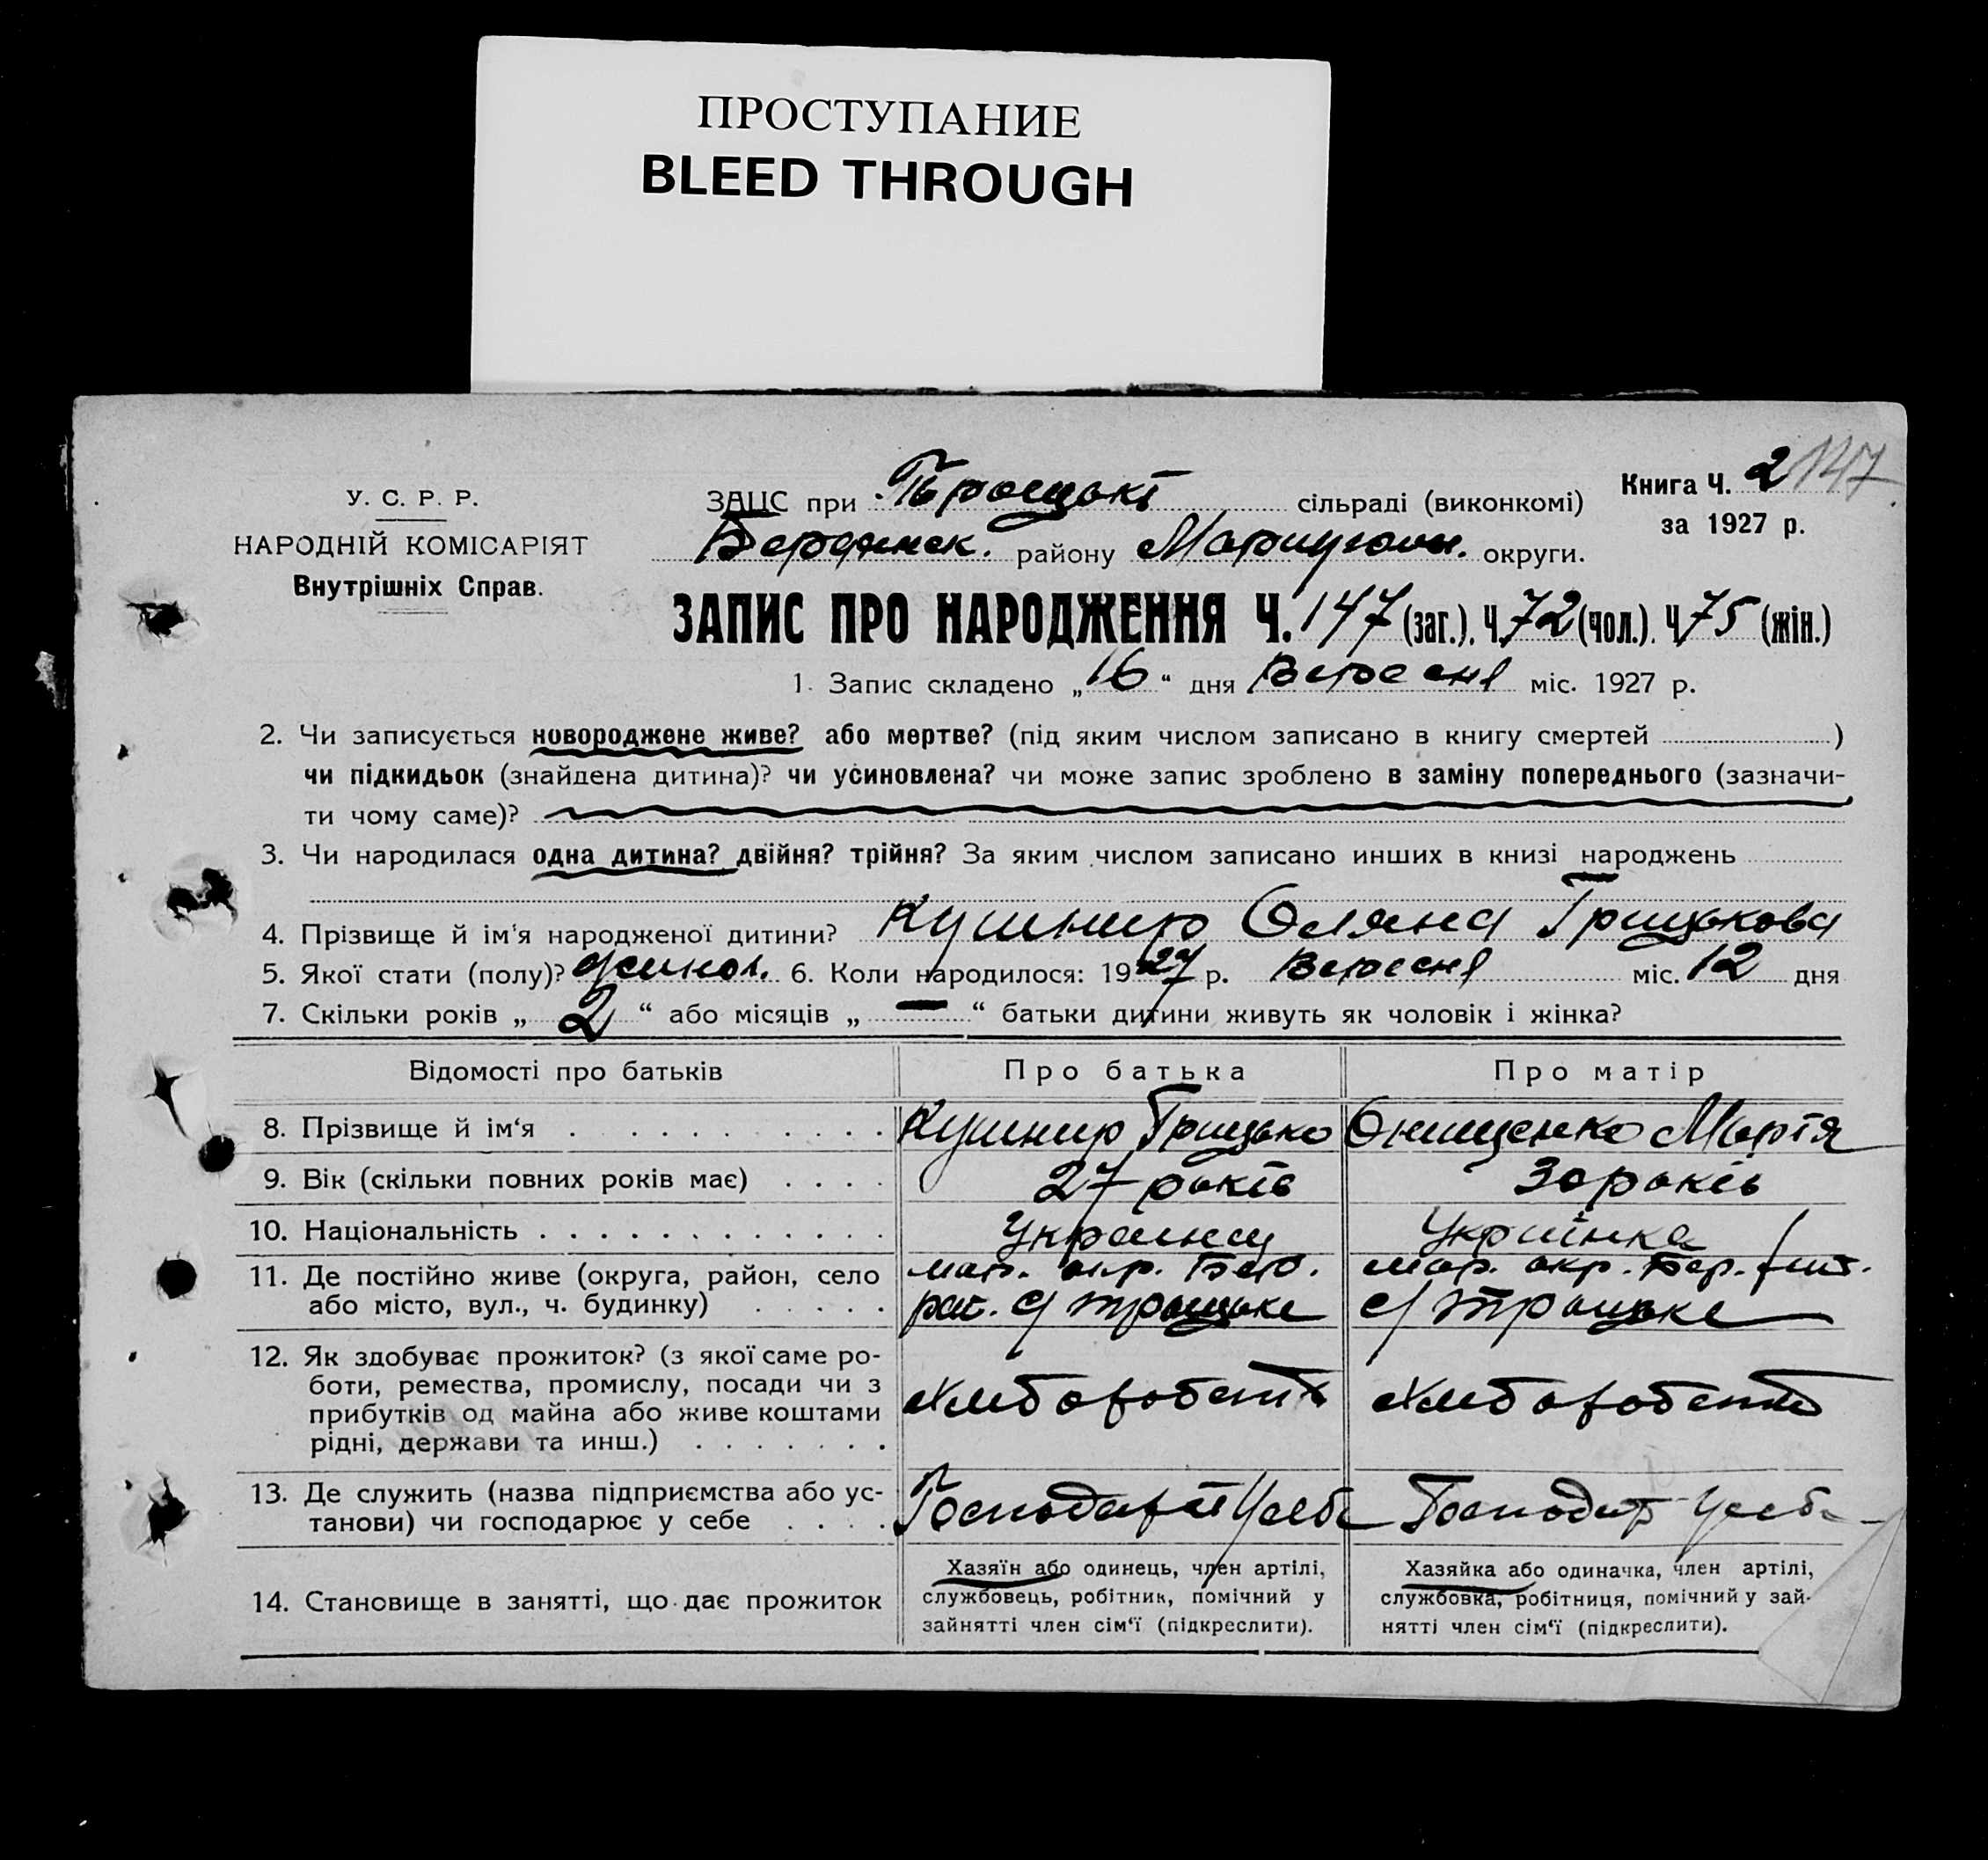 ПРОСТУПАНИЕ
BLEED THROUGH
У. С. Р. Р.
НАРОДНІЙ КОМІСАРІЯТ
Внутрішніх Справ.
ЗАЦС при Троцькі сільраді (виконкомі)
Бердянск. району Мариупольн. округи.
Книга Ч. 2 147
за 1927 р.
ЗАПИС ПРО НАРОДЖЕННЯ Ч. 147 (заг.), Ч. 72 (чол.), Ч. 75 (жін.)
1. Запис складено „16“ дня Вересня міс. 1927 р.
2. Чи записується новороджене живе? або мертве? (під яким числом записано в книгу смертей )
чи підкидьок (знайдена дитина)? чи усиновлена? чи може запис зроблено в заміну попереднього (зазначи-
ти чому саме)?
3. Чи народилася одна дитина? двійня? трійня? За яким числом записано инших в книзі народжень
4. Прізвище й ім'я народженої дитини? Кушнир Оляна Грицькова
5. Якої стати (полу)? жиноч. 6. Коли народилося: 1927 р. Вересня міс. 12 дня
7. Скільки років „ 2 “ або місяців „ — “ батьки дитини живуть як чоловік і жінка?
Відомості про батьків Про батька Про матір
8. Прізвище й ім‘я Кушнир Грицько Онищенко Марія
9. Вік (скільки повних років має) 27 років 30 років
10. Національність Украинец Украінка
11. Де постійно живе (округа, район, село мар. окр. Бер. мар. окр. Бер.
або місто, вул., ч. будинку) с/ троцьке с/ троцьке
12. Як здобуває прожиток? (з якої саме ро-
боти, ремества, промислу, посади чи з
прибутків од майна або живе коштами
рідні, держави та инш.)
13. Де служить (назва підприємства або ус-
танови) чи господарює у себе
14. Становище в занятті, що дає прожиток
Хазяїн або одинець, член артілі,
службовець, робітник, помічний у
зайнятті член сім‘ї (підкреслити).
Хазяйка або одиначка, член артілі,
службовка, робітниця, помічний у зай-
нятті член сім‘ї (підкреслити).